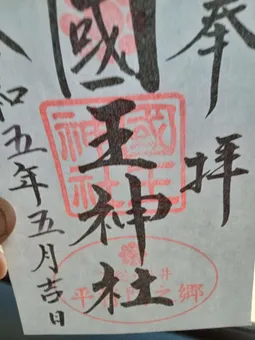 奉拝
國王神社
令和五年五月吉日
國王
神社
平
之郷